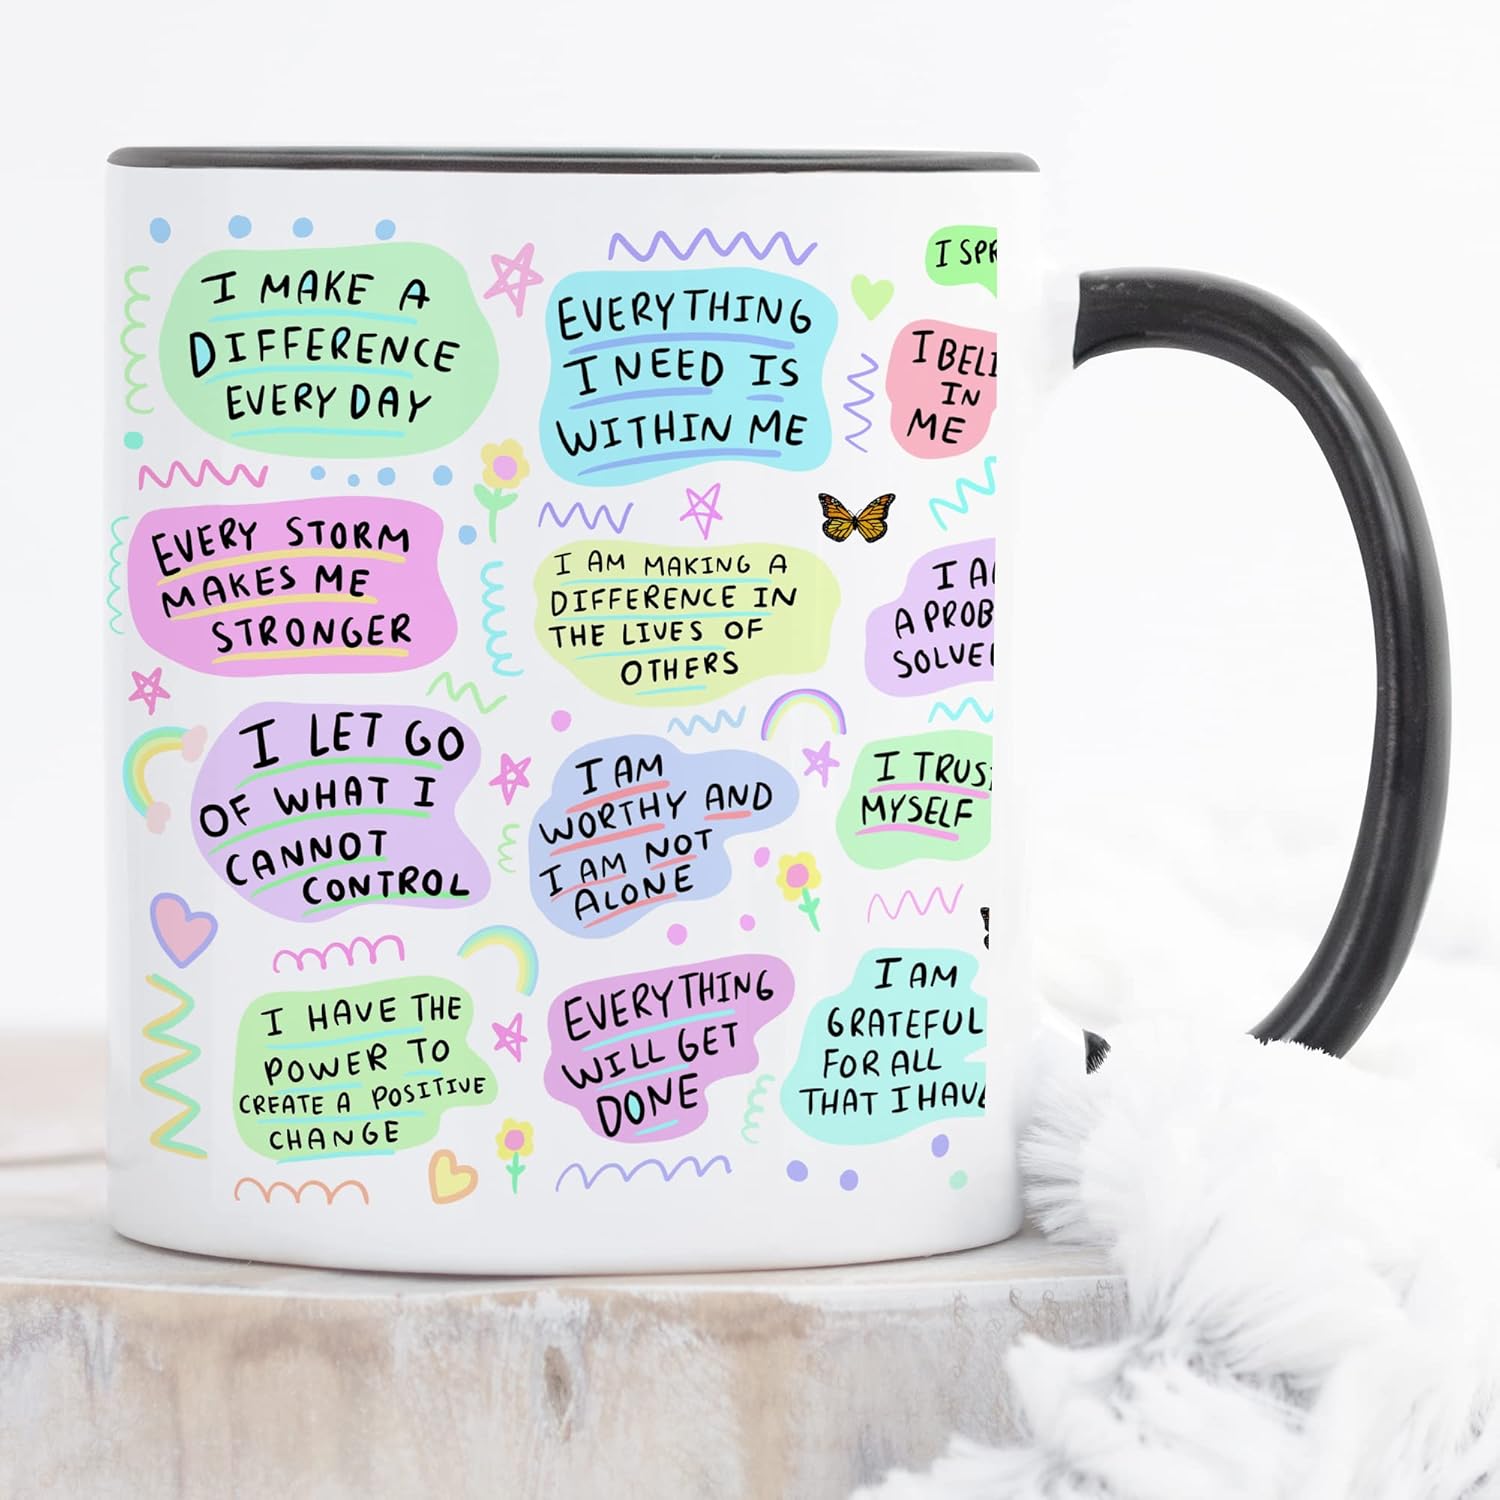 I MAKE A
DIFFERENCE
EVERY DAY
EVERYTHING
I NEED IS
WITHIN ME
I
I
IN
ME
EVERY STORM
MAKES ME
STRONGER
I AM MAKING A
DIFFERENCE IN
THE LIVES OF
OTHERS
I
A
I LET GO
OF WHAT I
CANNOT
CONTROL
I AM
WORTHY AND
I AM NOT
ALONE
I
MYSELF
I HAVE THE
POWER TO
CREATE A POSITIVE
CHANGE
EVERYTHING
WILL GET
DONE
I AM
GRATEFUL
FOR ALL
THAT I HAVE